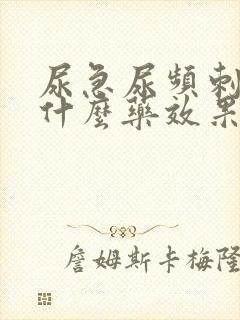 尿急尿頻刺
什麼藥效果
詹姆斯卡梅隆